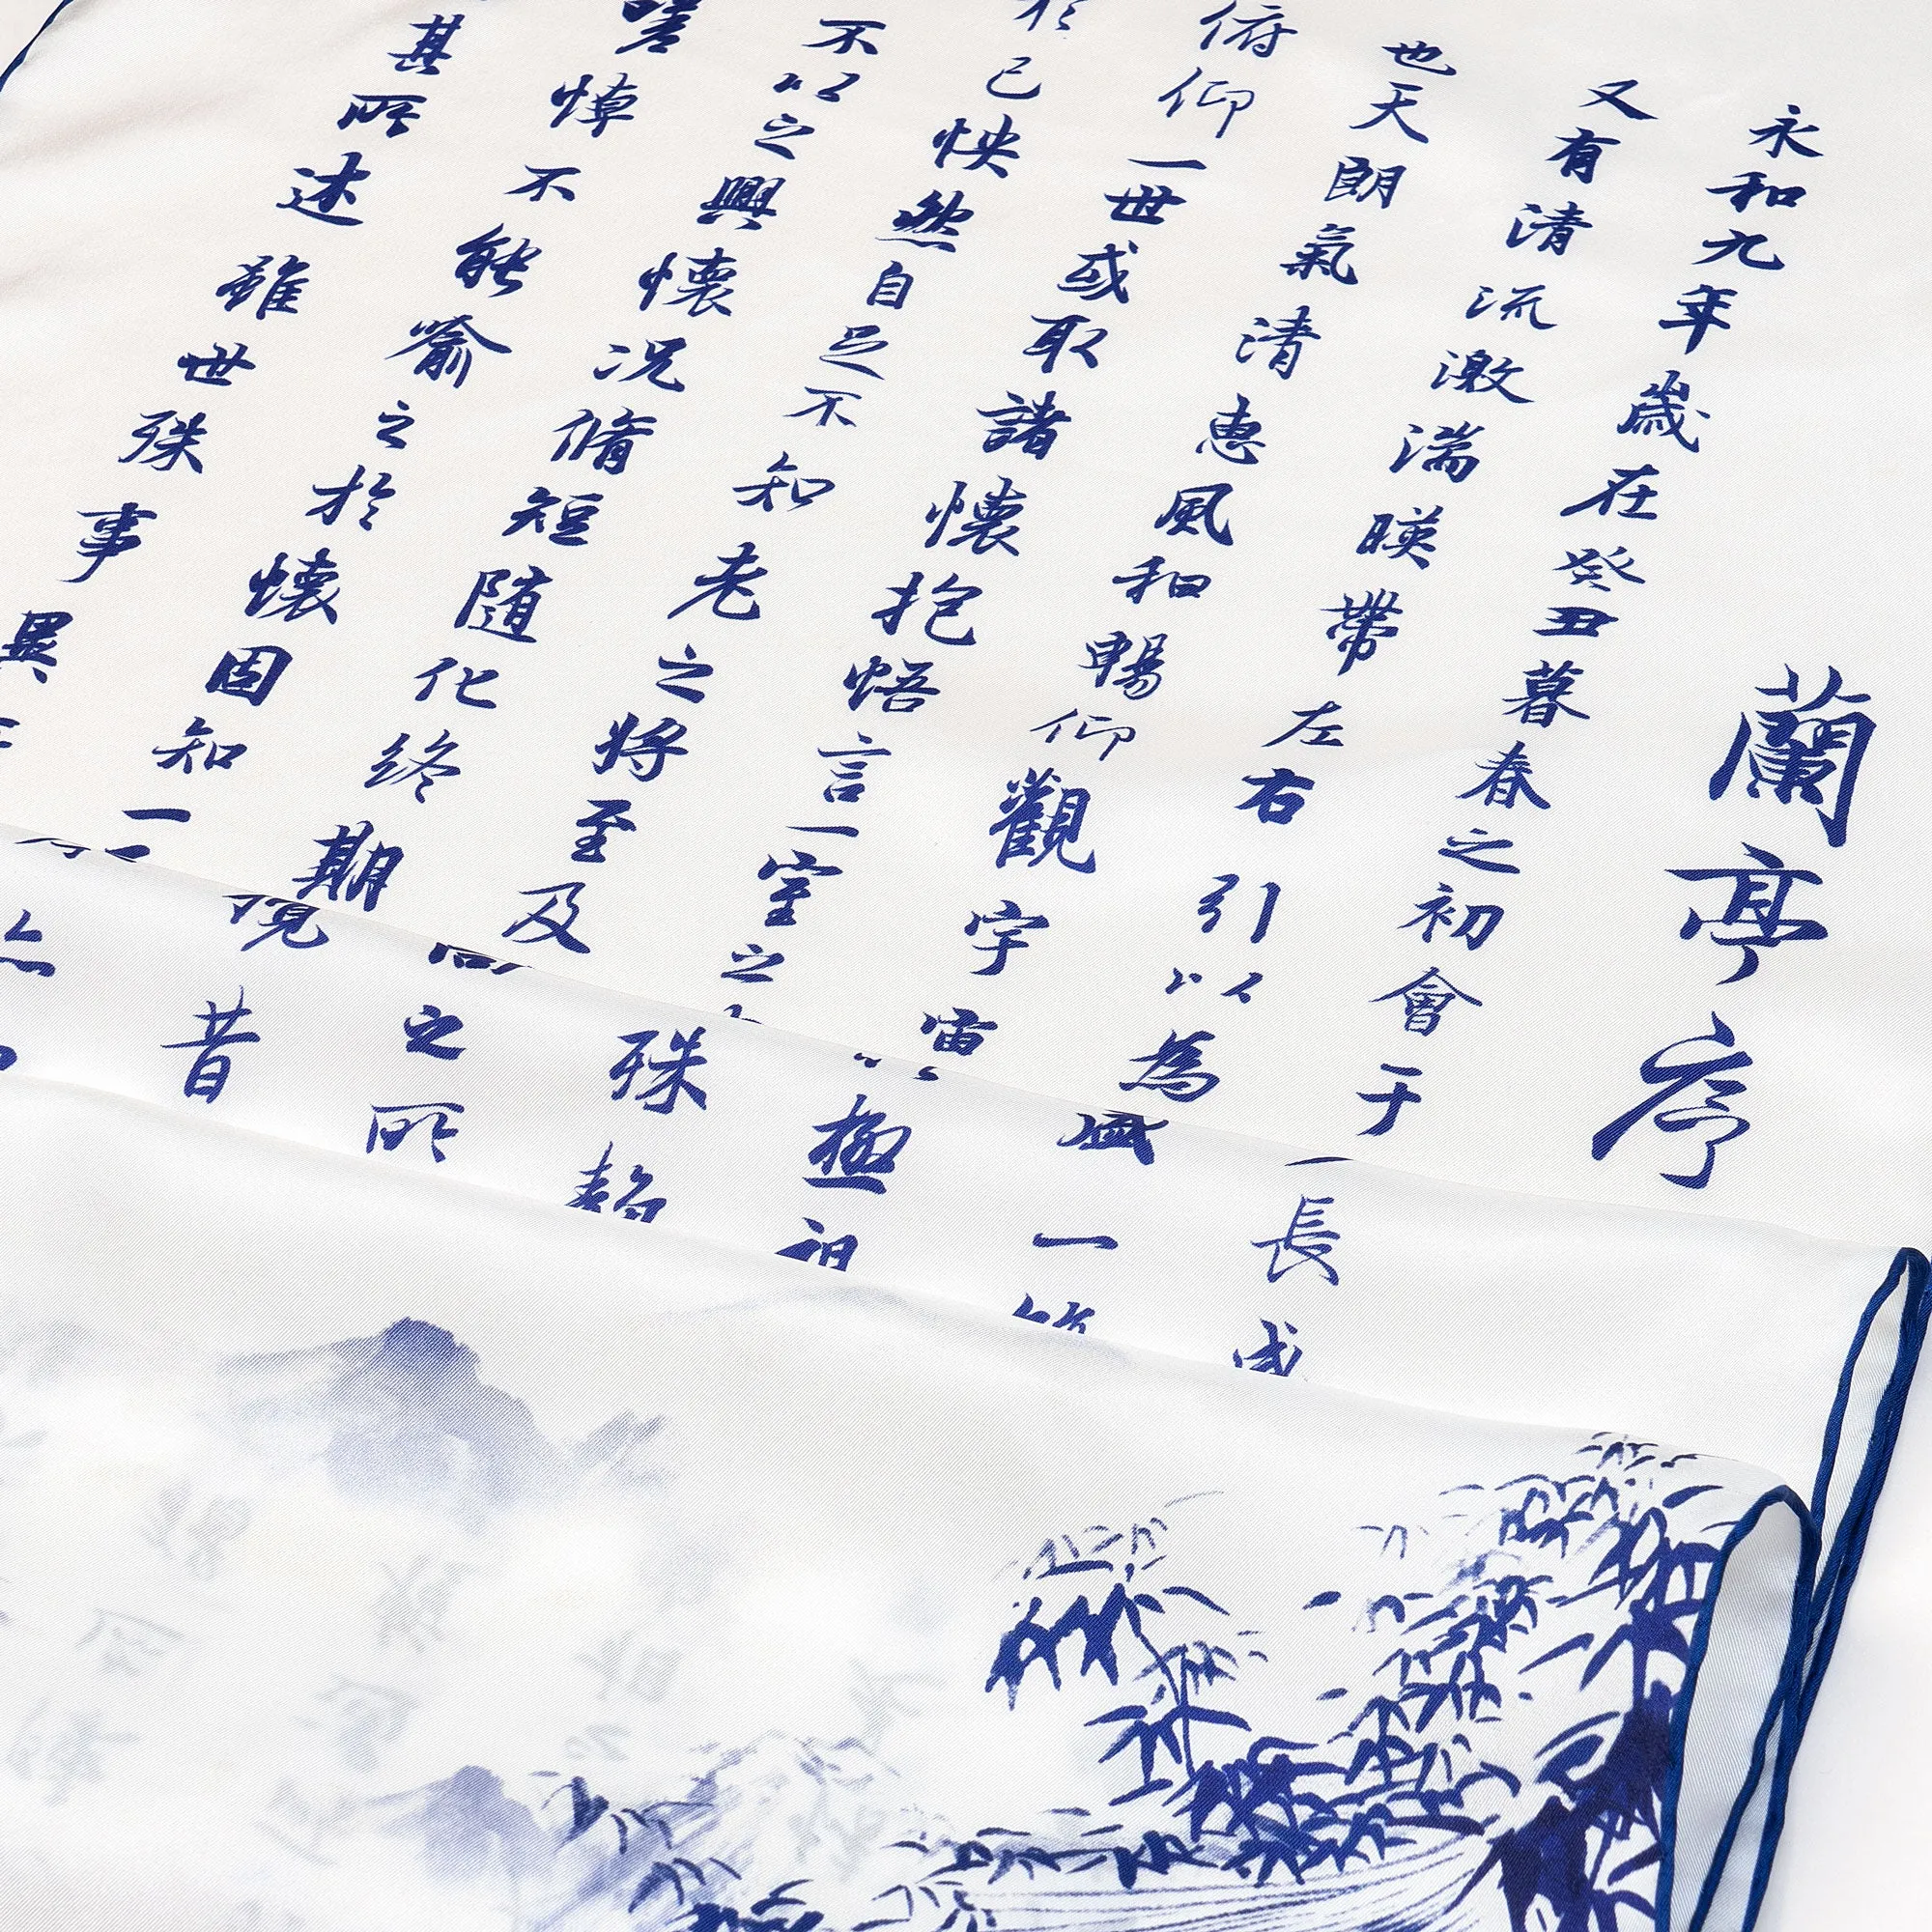 蘭亭序
永和九年歲在癸丑暮春之初會于
長咸
又有清流激湍暎帶左右引以為
盛一
也天朗氣清惠風和暢仰觀宇宙
極視
俯仰一世或取諸懷抱悟言一室之
殊静
於己怏然自足不知老之將至及
之所
不以之興懷况脩短隨化終期
昔
嗟悼不能喻之於懷固知一
其所述雖世殊事異